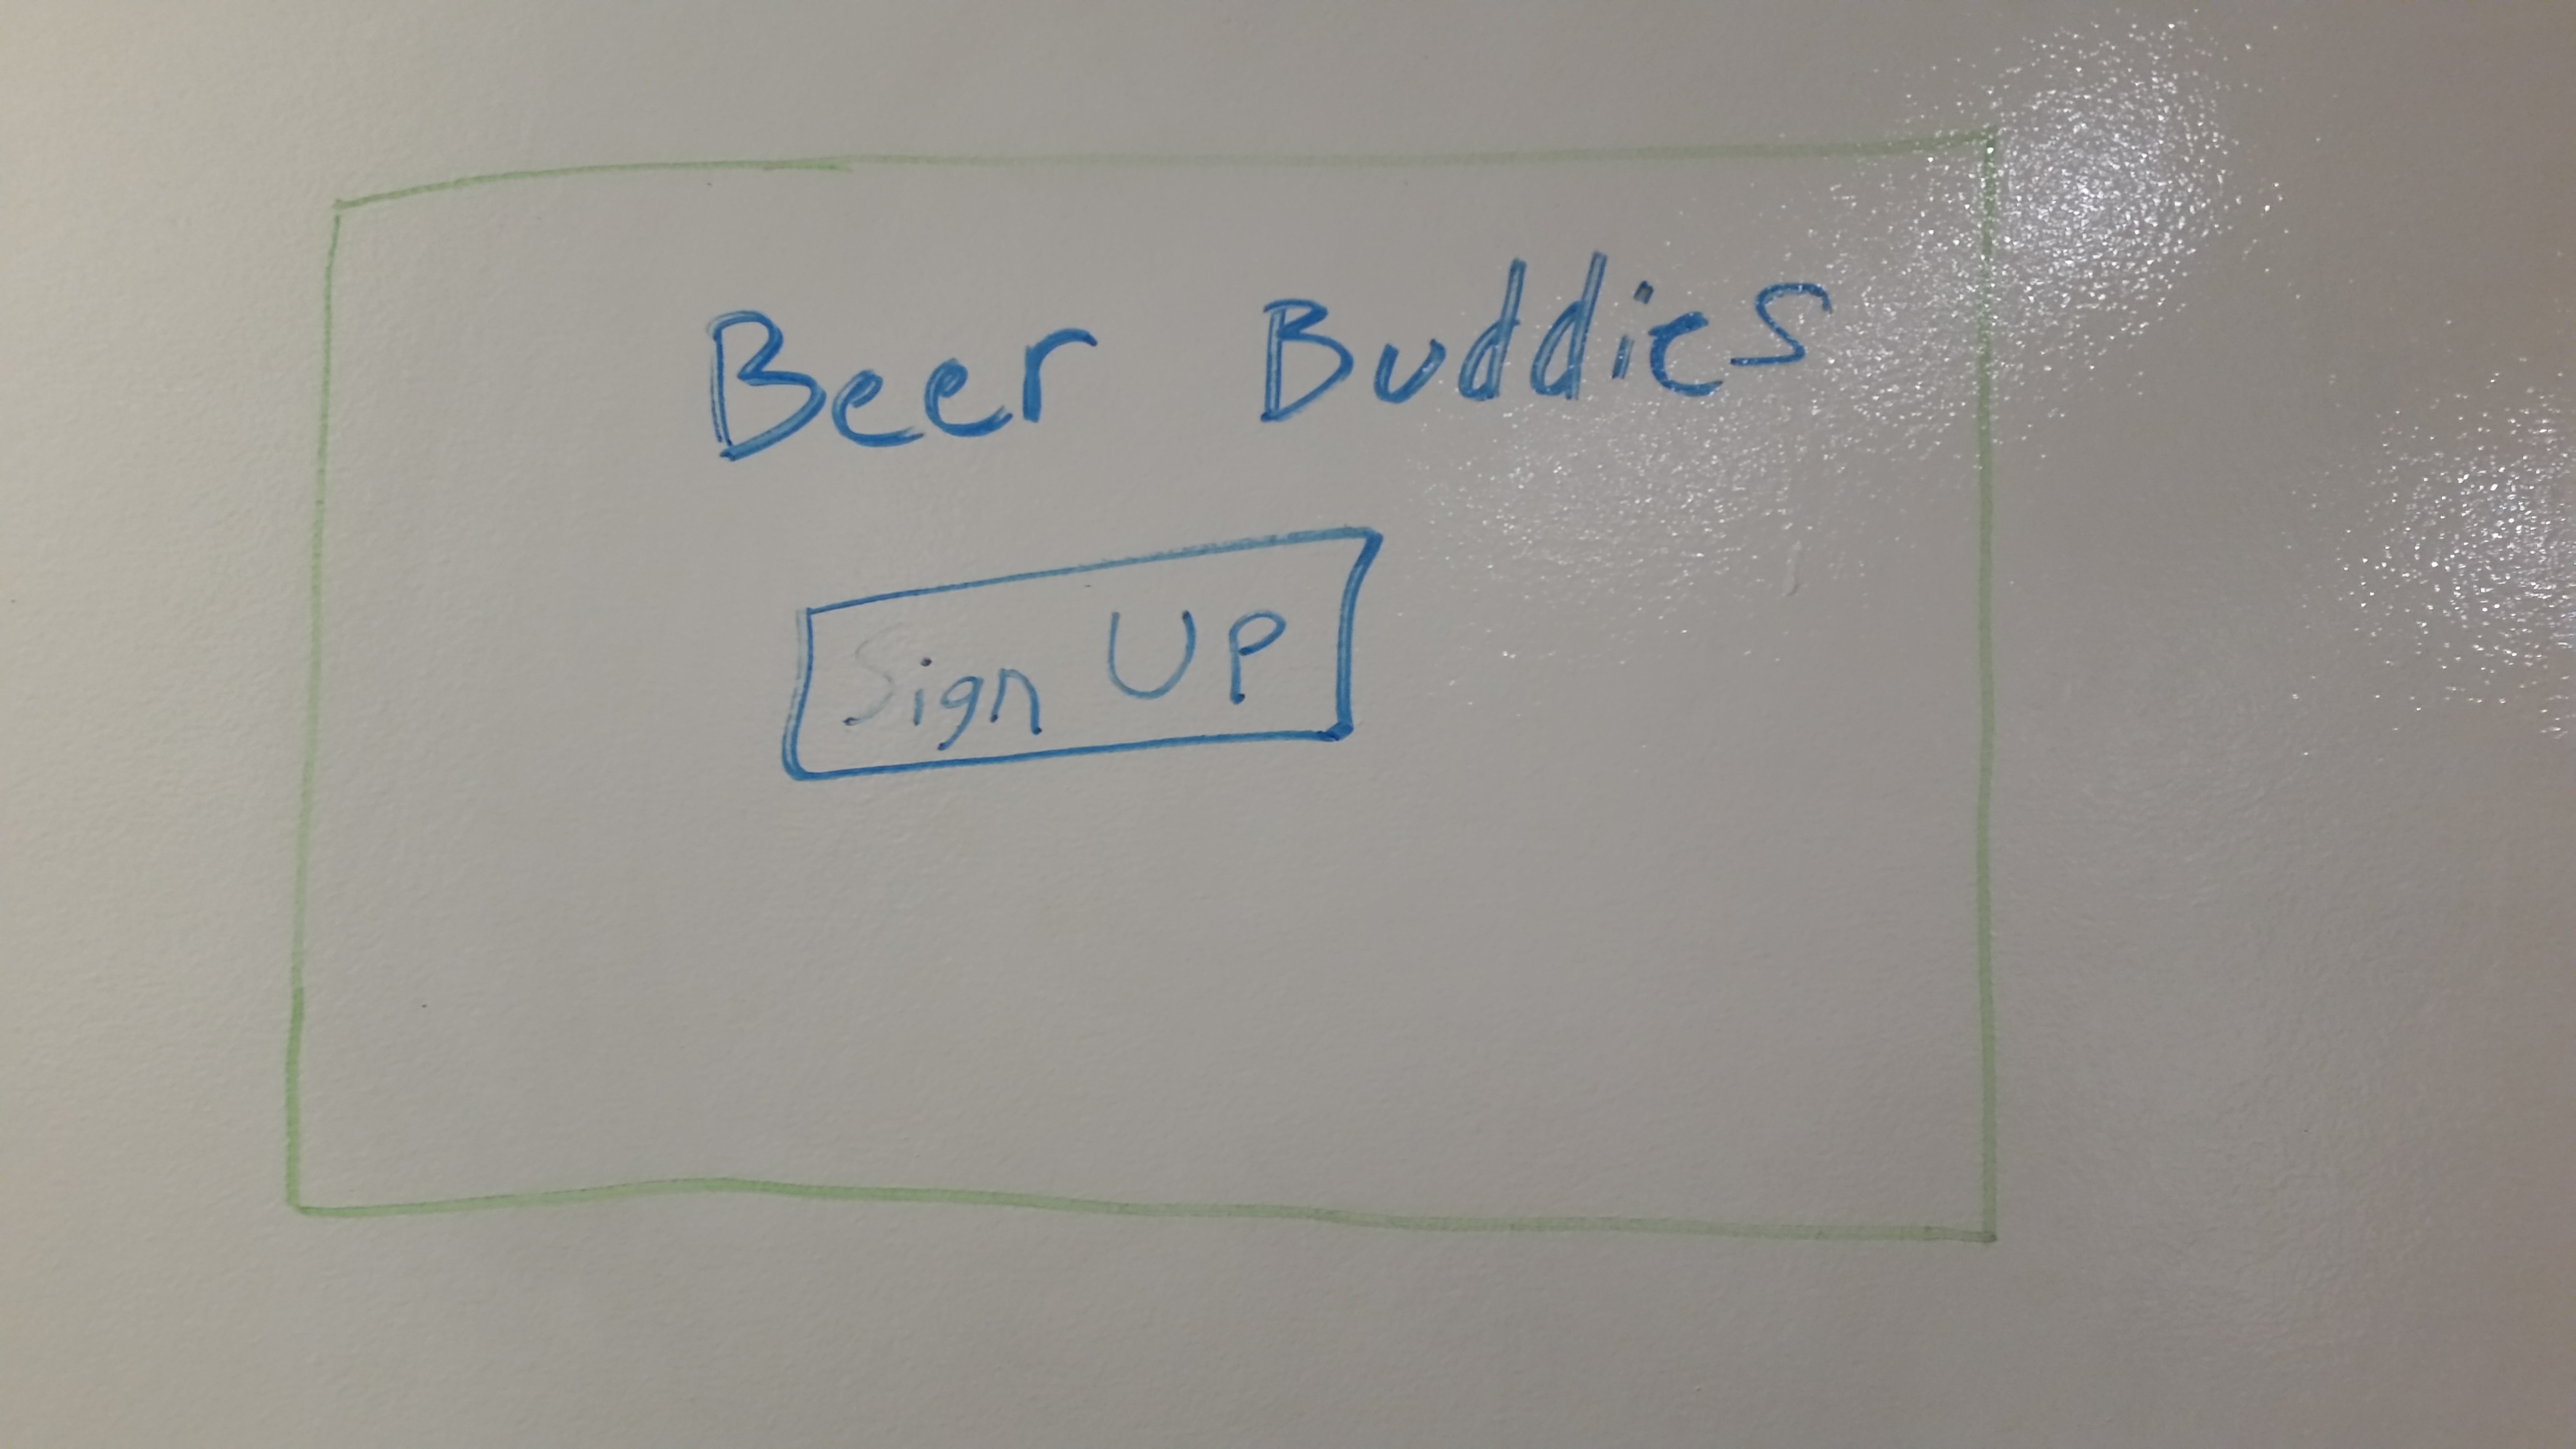 Beer Buddies
Sign UP